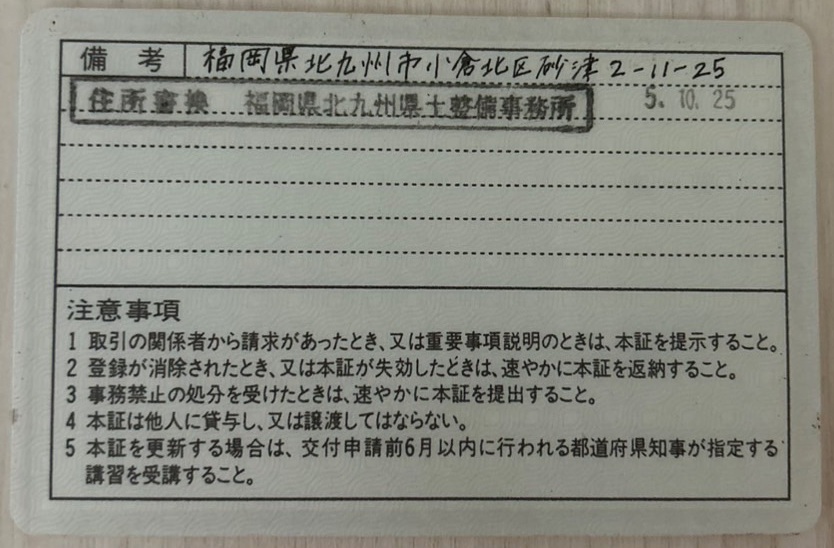 備考 福岡県北九州市小倉北区砂津2-11-25
住所書換 福岡県北九州県土整備事務所 5. 10. 25
注意事項
1 取引の関係者から請求があったとき、又は重要事項説明のときは、本証を提示すること。
2 登録が消除されたとき、又は本証が失効したときは、速やかに本証を返納すること。
3 事務禁止の処分を受けたときは、速やかに本証を提出すること。
4 本証は他人に貸与し、又は譲渡してはならない。
5 本証を更新する場合は、交付申請前6月以内に行われる都道府県知事が指定する
講習を受講すること。